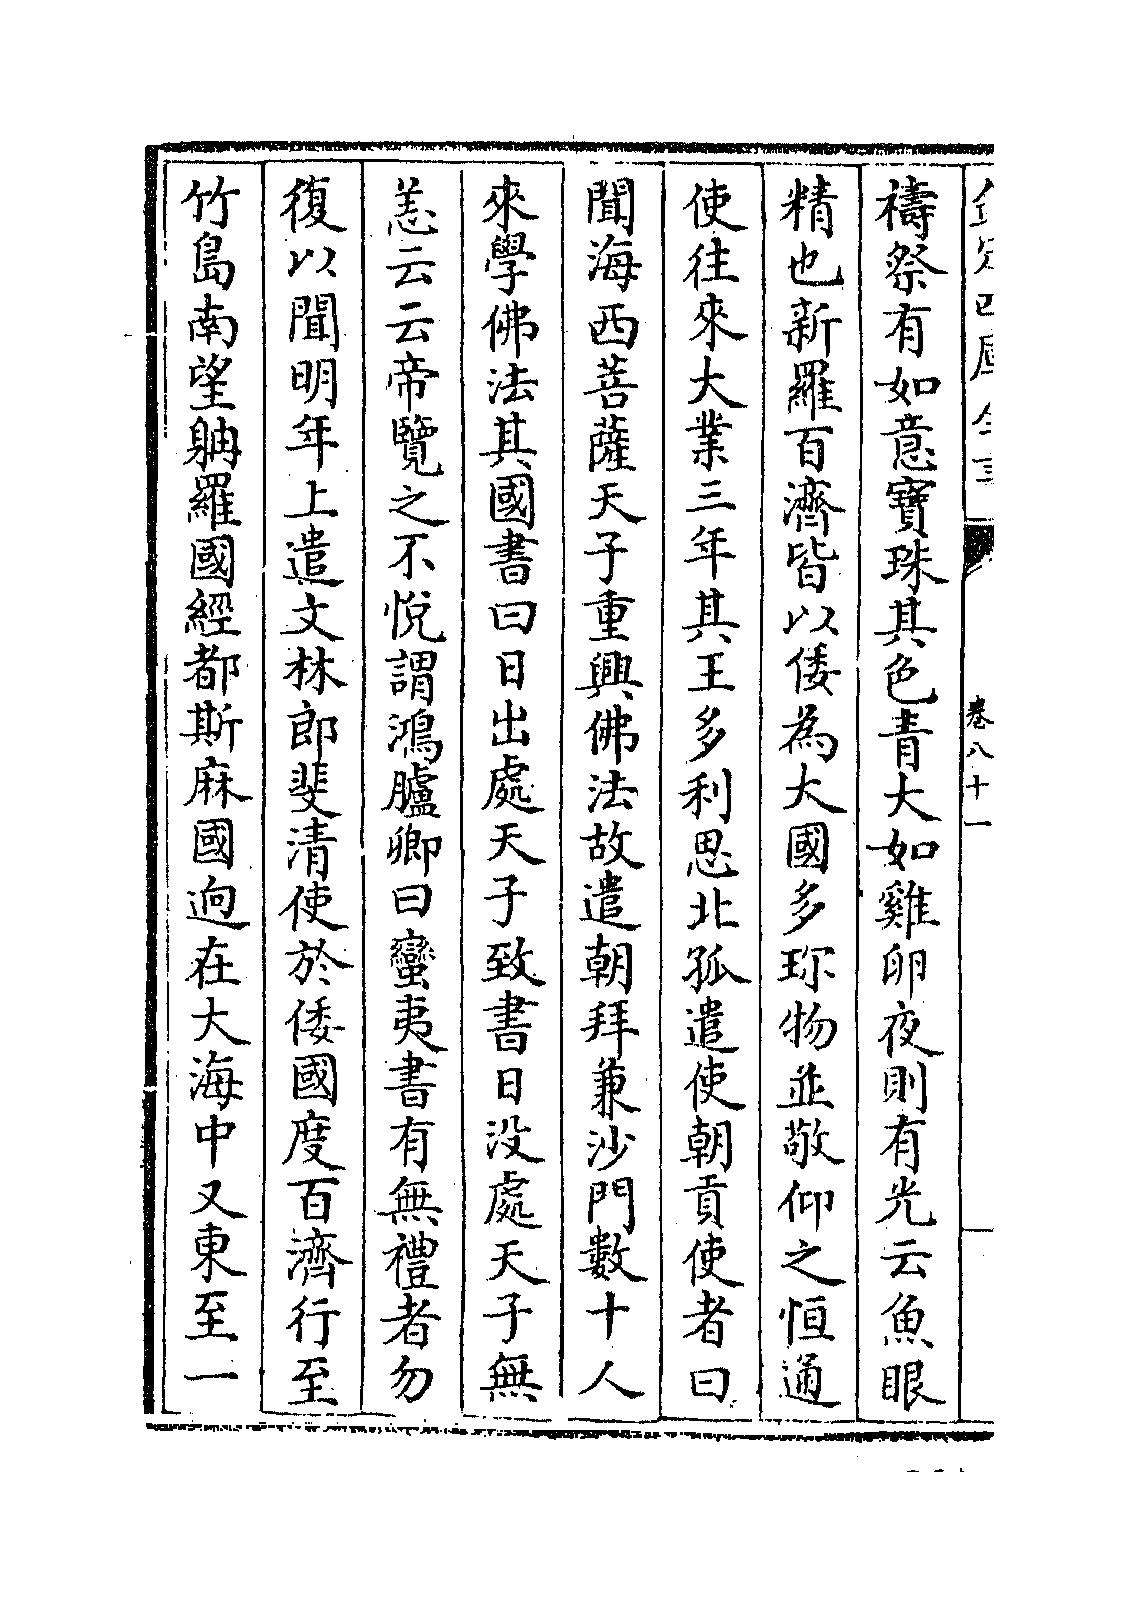 禱祭有如意寶珠其色青大如雞卵夜則有光云魚眼
精也新羅百濟皆以倭為大國多珎物並敬仰之恒通
使往來大業三年其王多利思北孤遣使朝貢使者曰
聞海西菩薩天子重興佛法故遣朝拜兼沙門數十人
來學佛法其國書曰日出處天子致書日没處天子無
恙云云帝覽之不悅謂鴻臚卿曰蠻夷書有無禮者勿
復以聞明年上遣文林郎斐清使於倭國度百濟行至
竹島南望䑳羅國經都斯麻國逈在大海中又東至一
卷八十一